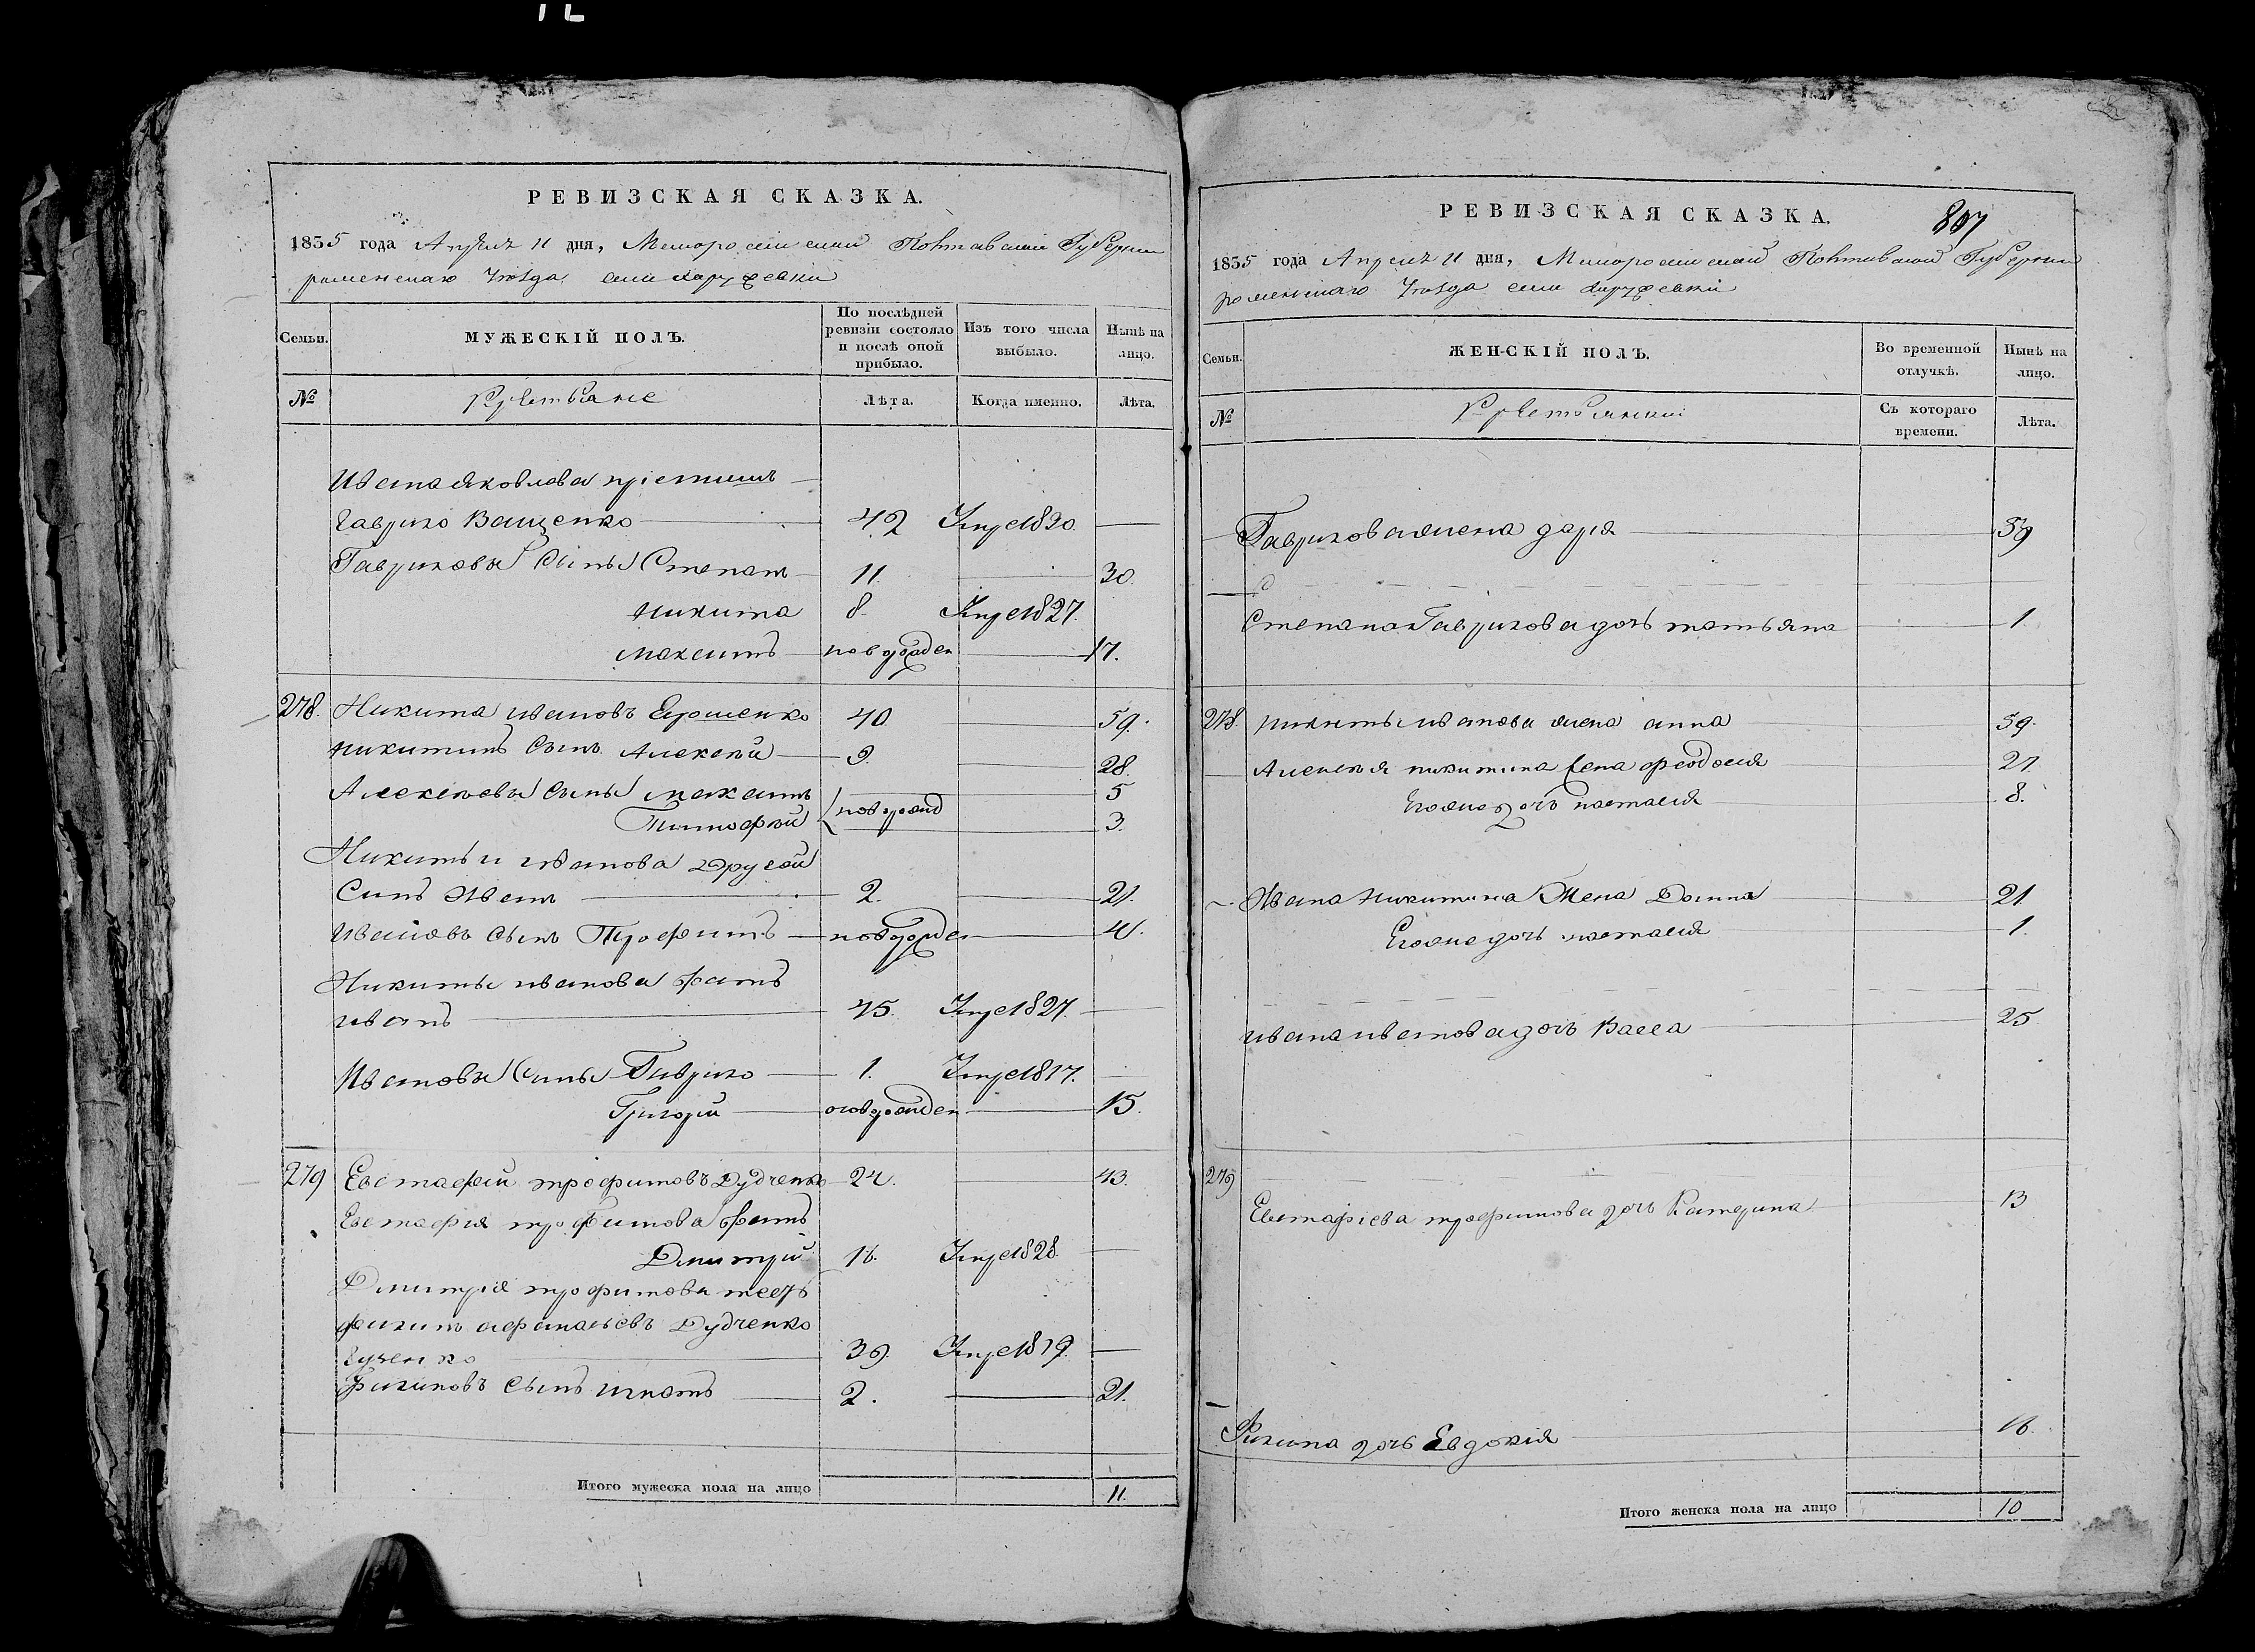 РЕВИЗСКАЯ СКАЗКА.
1835 года Апреля 11 дня, Малоросийской Полтавской Губернии
роменскаго уезда, села
Семьи.
МУЖЕСКІЙ ПОЛЪ.
По послѣдней ревизіи состояло и послѣ оной прибыло.
Изъ того числа выбыло.
Нынѣ на лицо.
№
Лѣта.
Когда именно.
Лѣта.
Ивана Яковлева
Гаврило Ващенко 42 Умре 1830.
Гавриловы Сыны Степанъ 11 30.
никита 8. Умре 1827.
максимъ новорожден 17.
278. Никита ивановъ Ярошенко 40 59.
никитинъ Сынъ Алексѣй 9. 28.
Алексѣевы Сыны максимъ 5
Тимофѣй новорожд 3.
Никиты иванова Другой
Синъ Иванъ 2. 21.
Ивановъ Сынъ Трофимъ новорожден 4.
Никиты иванова братъ
иванъ 45. Умре 1827.
Ивановы Сины Гаврило 1. Умре 1817.
Григорій новорожден 15.
279 Евстафій трофимовъ Дудченко 24. 43.
Евстафія трофимова братъ
Дмитрій 18. Умре 1828.
Дмитрія трофимова тесть
афанасьевъ Дудченко
39. Умре 1819.
Сынъ игнатъ 2. 21.
Итого мужеска пола на лицо 11.
РЕВИЗСКАЯ СКАЗКА.
807
1835 года Апреля 11 дня, Малоросийской Полтавской Губернии
роменскаго уезда села
Семьи.
ЖЕНСКІЙ ПОЛЪ.
Во временной отлучкѣ.
Нынѣ на лицо.
№
Съ котораго времени.
Лѣта.
Гаврилова жена дарія 59
Степана Гаврилова дочь татьяна 1.
278. никиты иванова жена анна 59.
Алексѣя никитина жена феодосія 27.
Егоже дочь настасія 8.
Ивана Никитина Жена Домна 21
Егоже дочь настасія 1.
ивана иванова дочь Васса 25
279
Евстафіева трофимова дочь Катерина 13
дочь Евдокія 16.
Итого женска пола на лицо 10